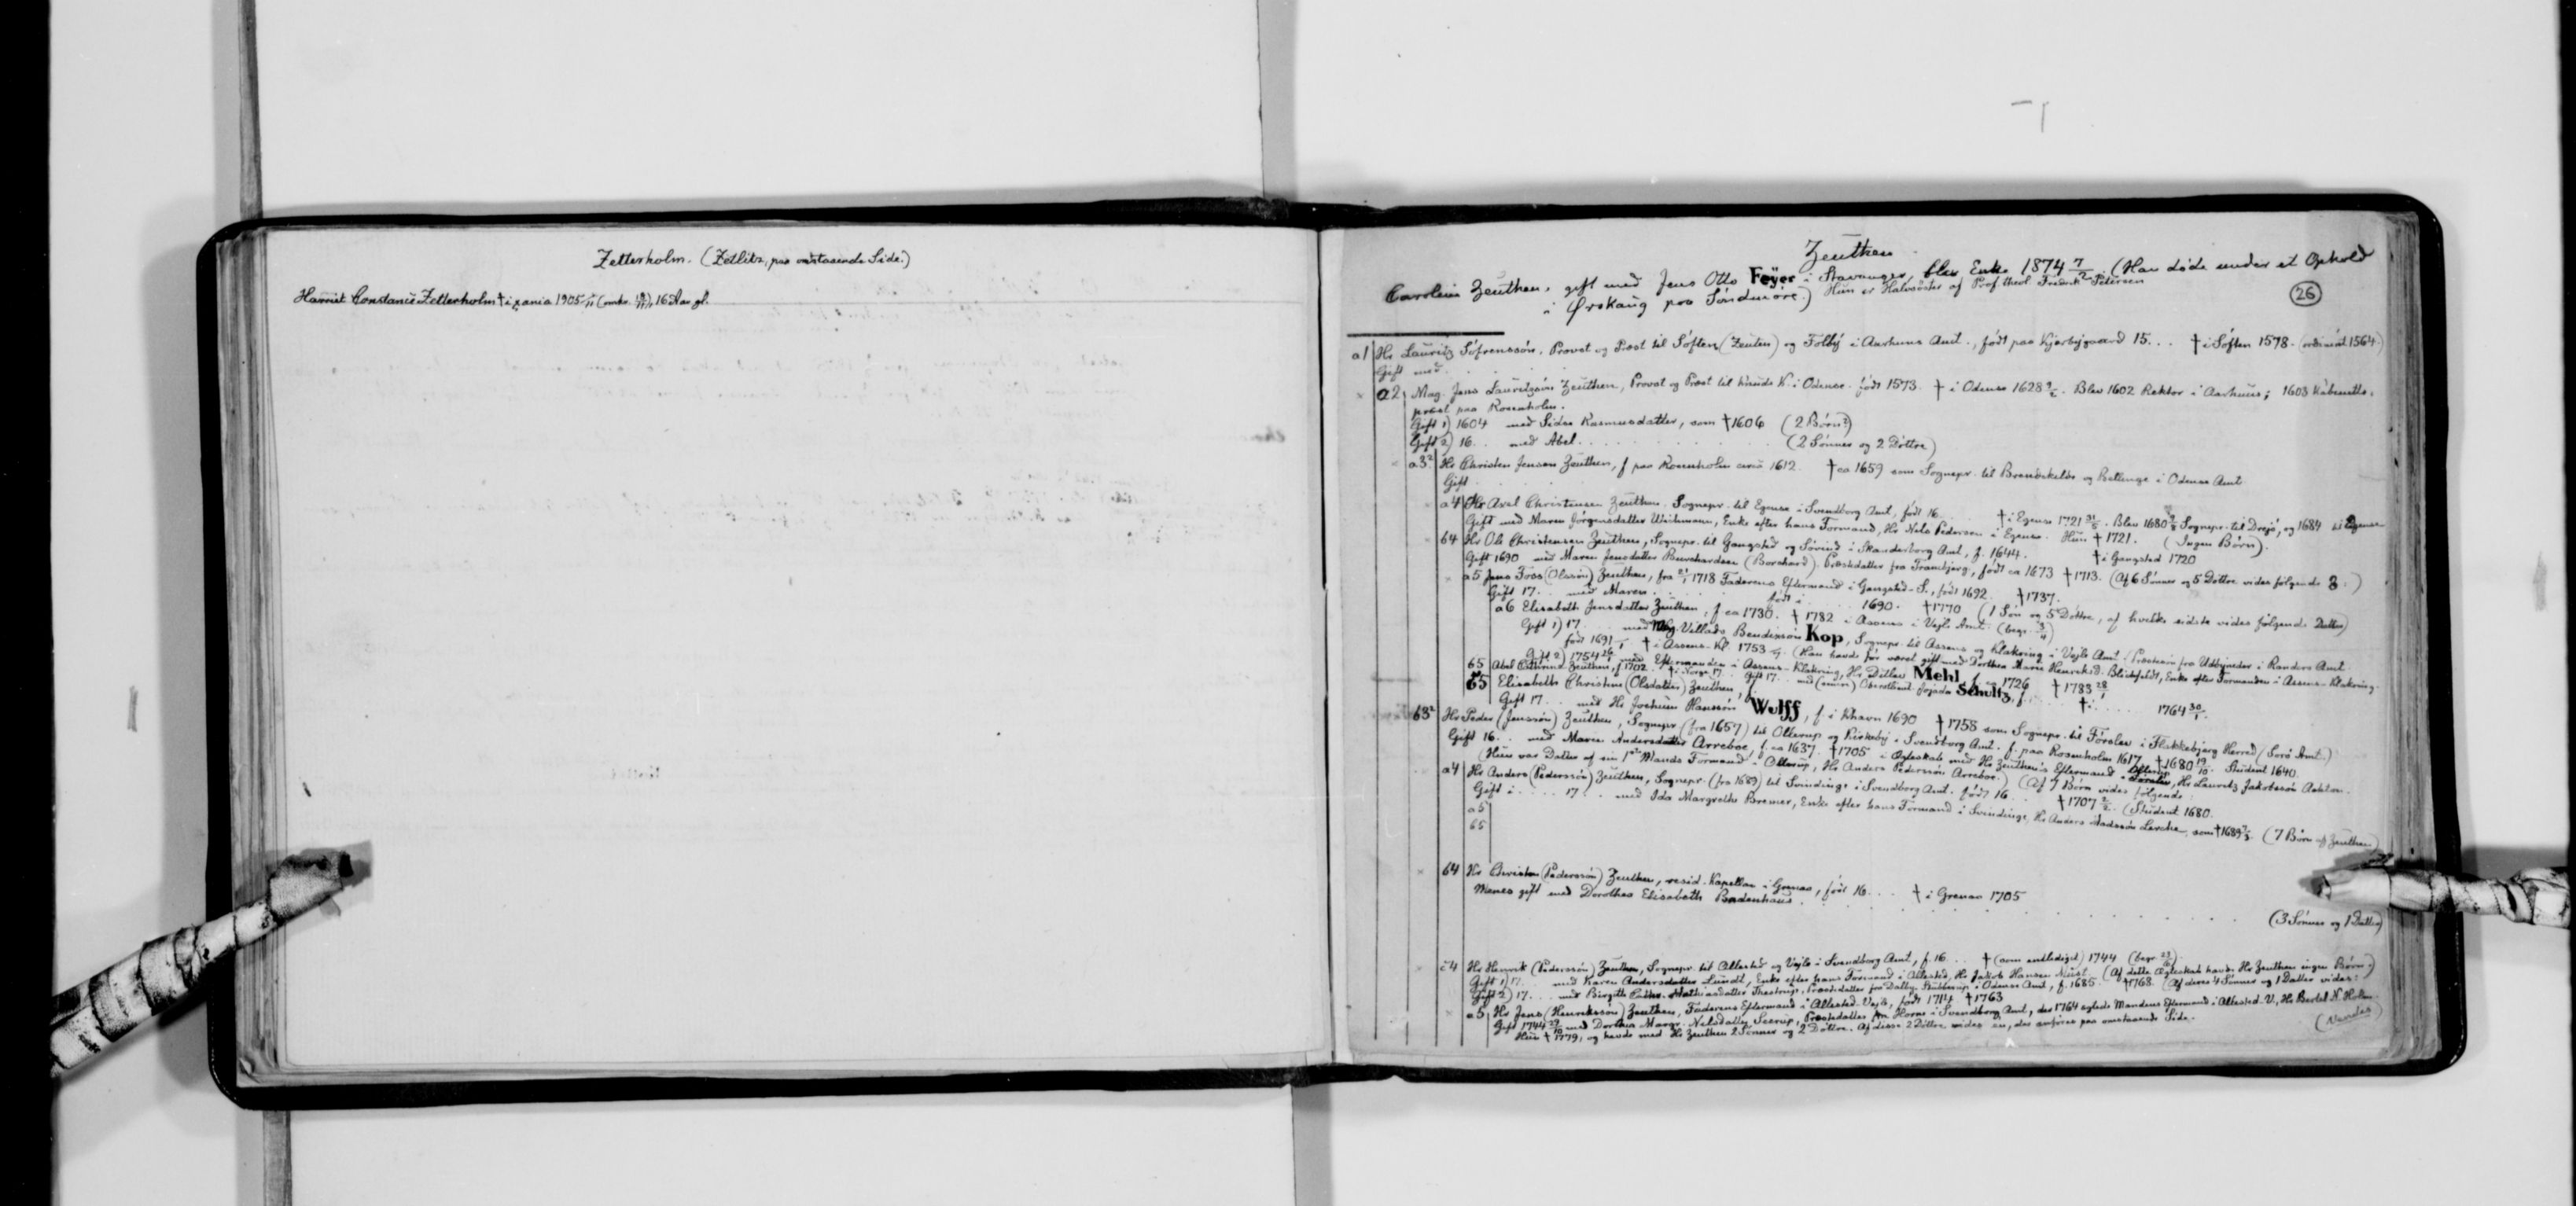 Zetterholm. (Zetlitz, paa omstaaende Side.)
Harriet Constance Zetterholm † i xania 1905 (nekr. 16 Aar gl.
Zeuthen
Caroline Zeuthen, gift med Jens Otto Feyer i Stavanger, blev Enke 1874 7/2. (Han døde under et Ophold
i Ørskaug paa Söndmöre.) Hun er Halvsöster af Prof. theol. Fredrik Petersen
26
a1 Hr Lauritz Söfrenssön, Provst og Præst til Söften (Zeuten) og Folby i Aarhuus Amt., født paa Kjærbygaard 15... † i Söften 1578. (ordineret 1564.)
Gift med
a2 Mag. Jens Lauritzsön Zeuthen, Provst og Præst til Knuds K. i Odense. født 1573. † i Odense 1628. Blev 1602 Rektor i Aarhuus; 1603 Kabinets-
præst paa Rosenholm.
Gift 1) 1604 med Sidse Rasmusdatter, som † 1606 (2 Börn?)
Gift 2) 16.. med Abel (2 Sönner og 2 Döttre)
a3² Hr Christen Jensen Zeuthen, f paa Rosenholm circa 1612. † ca 1659 som Sognepr. til Brendekilde og Bellinge i Odense Amt
Gift
a4 Hr Axel Christensen Zeuthen. Sognepr. til Egense i Svendborg Amt, født 16... † i Egense 1721 31/5. Blev 1680 Sognepr. til Drejö, og 1684 til Egense
Gift med Maren Jörgensdatter Weichmann, Enke efter hans Formand, Hr Nels Pedersen i Egense. Hun † 1721. (Ingen Börn).
b4 Hr Ole Christensen Zeuthen, Sognepr. til Gangsted og Sövind i Skanderborg Amt, f. 1644. † i Gangsted 1720
Gift 1690 med Maren Jensdatter Burchardsen (Borchard). Præstedatter fra Tranebjerg, født ca 1673 † 1713. (Af 6 Sönner og 5 Döttre vides følgende 3:)
a5 Jens Foss (Olssön) Zeuthen, fra 21/1 1718 Faderens Eftermand i Gangsted-S., født 1692. † 1737.
Gift 17.. med Maren født i 1690. † 1770 (1 Sön og 5 Döttre, af hvilke sidste vides følgende Datter)
a6 Elisabeth Jensdatter Zeuthen, f. ca 1730. † 1782 i Assens i Vejle Amt. (begr. 3/4)
Gift 1) 17.. med Mag. Vellads Bendixsön Kop, Sognepr. til Assens og Klakring i Vejle Amt. Præstesön fra Udbyneder i Randers Amt
født 1691 † i Assens-Kl. 1753. (Han havde før været gift med Dorthea Marie Henriksd. Blichfeldt, Enke efter Formanden i Assens-Klakring.
Gift 2) 1754 med Eftermanden i Assens-Klakring, Hr Ditlev Mehl, f. ca 1726 † 1783 28/1
b5 Abel Cathrine Zeuthen, f 1702 † i Norge 17.. Gift 17.. med Schultz, f.
b5 Elisabeth Christine (Olsdatter) Zeuthen, † i 1764 30/1.
Gift 17.. med Hr Jochum Hanssön Wulff, f. i Khavn 1690 † 1758 som Sognepr. til Förslev i Flakkebjerg Herred (Sorö Amt.)
b3² Hr Peder (Jenssön) Zeuthen, Sognepr. (fra 1657) til Otterup og Kirkeby i Svendborg Amt. f. paa Rosenholm 1617 † 1680 19/10. Student 1640.
Gift 16.. med Marie Andersdatter Arreboe, f. ca 1637. † 1705 i Ægteskab med Hr Zeuthen's Eftermand i Otterup, Hr Lauritz Jakobssön Aalstor.
(Hun var Datter af sin 1ste Mands Formand i Otterup, Hr Anders Pederssön Arreboe.) (Af 7 Börn vides følgende:
a4 Hr Anders (Pederssön) Zeuthen, Sognepr. (fra 1689) til Svindinge i Svendborg Amt. født 16.. † 1707. (Student 1680.
Gift i 17.. med Ida Margrethe Bremer, Enke efter hans Formand i Svindinge, Hr Anders Madssön Lerche, som † 1689. (7 Börn af Zeuthen)
a5
b5
b4 Hr Christen (Pederssön) Zeuthen, resid. Kapellan i Grenaa, født 16.... † i Grenaa 1705
Menes gift med Dorothea Elisabeth Badenhaus (3 Sönner og 1 Datter)
c4 Hr Henrik (Pederssön) Zeuthen, Sognepr. til Allested og Vejle i Svendborg Amt, f. 16.. † (som entlediget) 1744 (begr.
Gift 1) 17.. med Karen Andersdatter Lundt, Enke efter hans Formand i Allested, Hr Jakob Hansen Must. (Af dette Ægteskab havde Hr Zeuthen ingen Börn.)
Gift 2) 17.. med Birgitte Cathr. Mathiasdatter Thestrup, Præstedatter fra Dalby-Stubberup i Odense Amt, f. 1685. † 1768. (Af deres 4 Sönner og 1 Datter vides:)
a5 Hr Jens (Henrikssön) Zeuthen, Faderens Eftermand i Allested-Vejle, født 1714 † 1763
Gift 1744 29/10 med Dorthea Margr. Nelsdatter Seerup, Præstedatter fra Horne i Svendborg Amt, der 1764 ægtede Mandens Eftermand i Allested-V., Hr Bertel N. Holm.
Hun † 1779, og havde med Hr Zeuthen 2 Sönner og 2 Döttre. Af disse 2 Döttre vides en, der anføres paa omstaaende Side.
(Vendes)